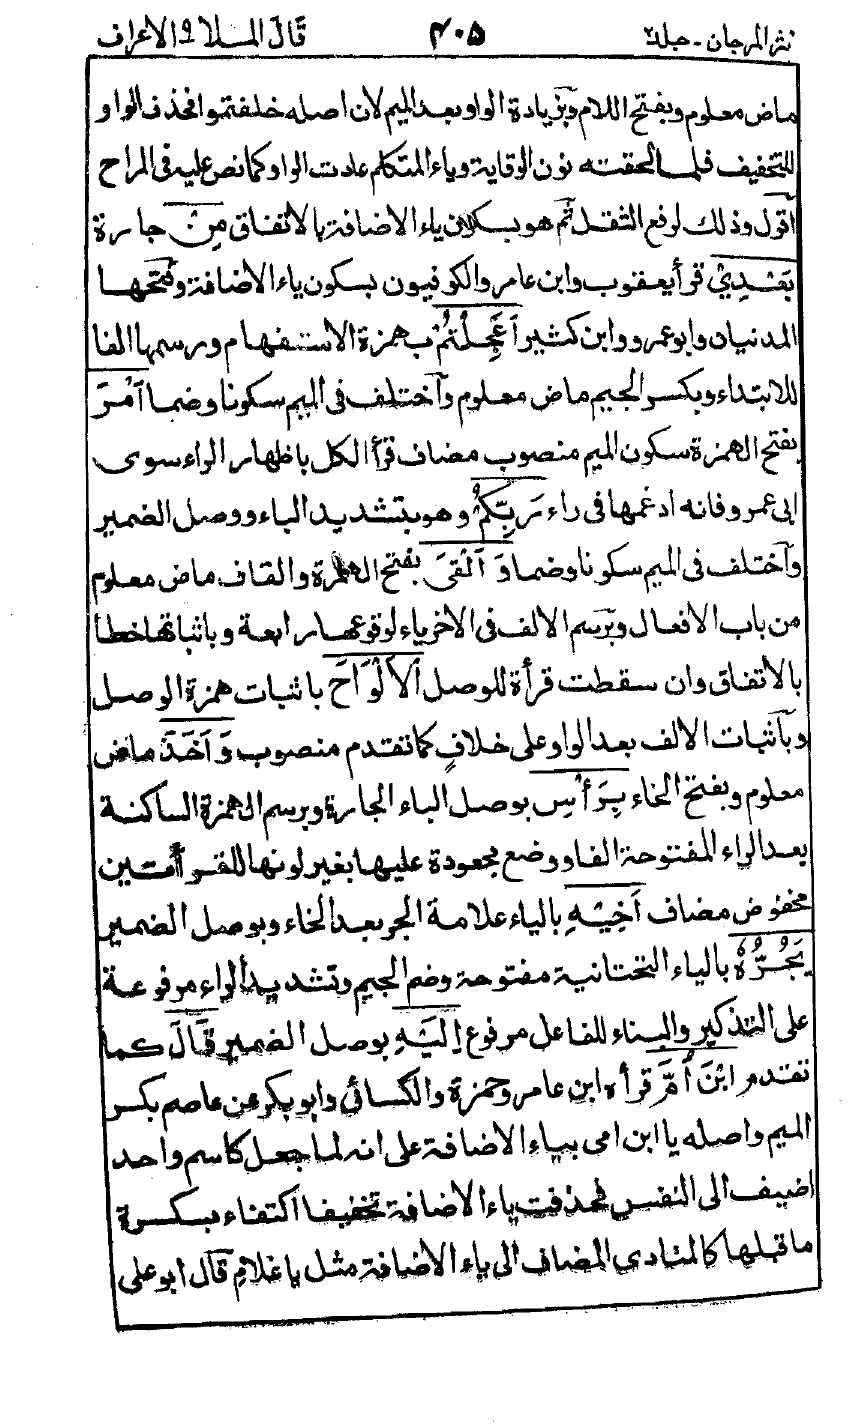 نثر المرجان - جلد٢ ٤٠٥ قَالَ الملا ٩ الاعراف
ماض معلوم وبفتح اللام وبزيادة الواو بعد الميم لان اصله خلفتموا فحذف الواو
للتخفيف فلما الحقته نون الوقاية وياء المتكلم عادت الواو كما نص عليه فى المراح
اقول وذلك لرفع الثقل ثم هو بسكون ياء الاضافة بالاتفاق مِنْ جارة
بَعْدِيْ قرأ يعقوب وابن عامر والكوفيون بسكون ياء الاضافة وفتحها
المدنيان وابو عمرو وابن كثير اَعَجِلْتُمْ بهمزة الاستفهام ورسمها الفا
للابتداء وبكسر الجيم ماض معلوم واختلف فى الميم سكونا وضما اَمْرَ
بفتح الهمزة سكون الميم منصوب مضاف قرأ الكل باظهار الراء سوى
ابى عمرو فانه ادغمها فى راء رَبِّكُمْ وهو بتشديد الباء ووصل الضمير
واختلف فى الميم سكونا وضما وَ اَلْقَى بفتح الهمزة والقاف ماض معلوم
من باب الافعال وبرسم الالف فى الاخر ياء لوقوعها رابعة وباثباتها خطا
بالاتفاق وان سقطت قرأة للوصل اَلْاَلْوَاحَ باثبات همزة الوصل
وباثبات الالف بعد الواو على خلاف كما تقدم منصوب وَاَخَذَ ماض
معلوم وبفتح الخاء بِرَأْسِ بوصل الباء الجارة وبرسم الهمزة الساكنة
بعد الراء المفتوحة الفا ووضع مجعودة عليها بغير لونها للقرأتين
مخفوض مضاف اَخِيْهِ بالياء علامة الجر بعد الخاء وبوصل الضمير
يَجُرُّهٗ بالياء التحتانية مفتوحة وضم الجيم وتشديد الراء مرفوعة
على التذكير والبناء للفاعل مرفوع اِلَيْهِ بوصل الضمير قَالَ كما
تقدم ابْنَ اُمَّ قرأه ابن عامر وحمزة والكسائى وابو بكر عن عاصم بكسر
الميم واصله يا ابن امى بياء الاضافة على انه لما جعل كاسم واحد
اضيف الى النفس فحذفت ياء الاضافة تخفيفا اكتفاء بكسرة
ما قبلها كالمنادى المضاف الى ياء الاضافة مثل يا غلامِ قال ابو على